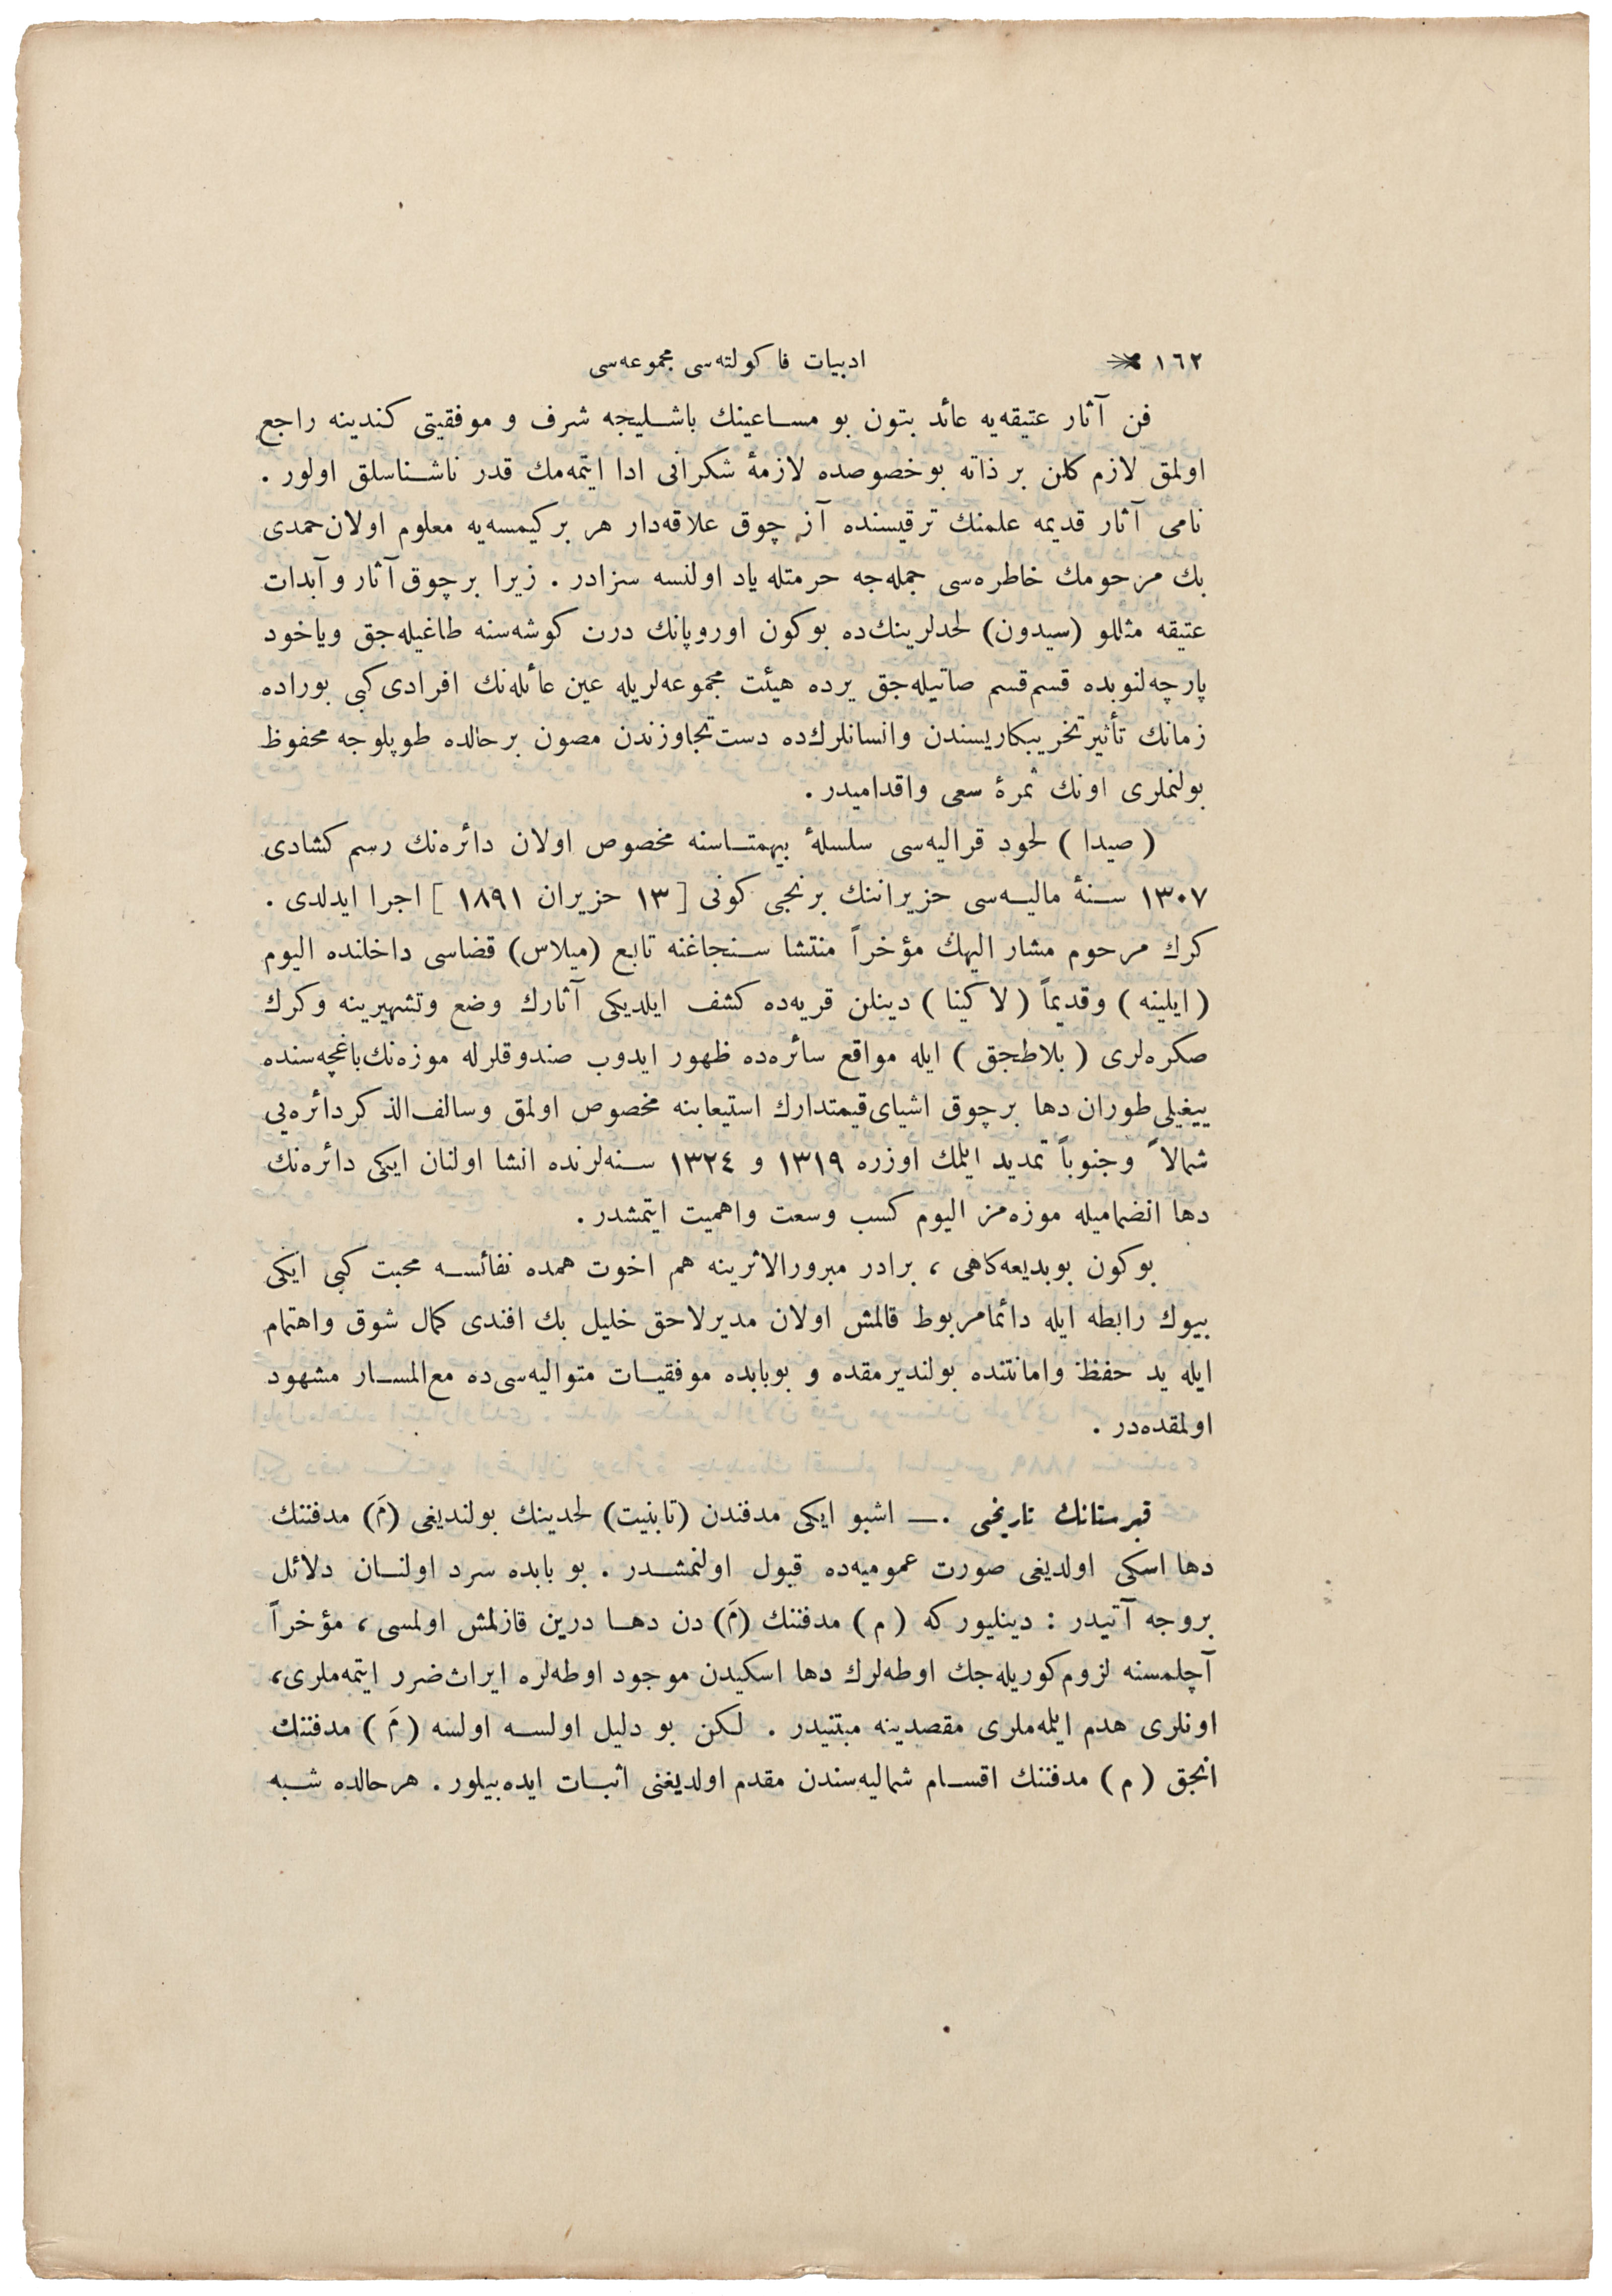 ١٦٢ ادبيات فاكولته‌سى مجموعه‌سى
فن آثار عتيقه‌يه عائد بتون بو مساعينك باشليجه شرف و موفقيتى كندينه راجع
اولمق لازم كلن بر ذاته بوخصوصده لازمۀ شكرانى ادا ايتمه‌مك قدر ناشناسلق اولور .
نامى آثار قديمه علمنك ترقيسنده آز چوق علاقه‌دار هر بر كيمسه‌يه معلوم اولان حمدى
بك مرحومك خاطره‌سى جمله‌جه حرمتله ياد اولنسه سزادر . زيرا برچوق آثار و آبدات
عتيقه مثللو (سيدون) لحدلرينك‌ده بوكون اوروپانك درت كوشه‌سنه طاغيله‌جق وياخود
پارچه‌لنوبده قسم قسم صاتيله‌جق يرده هيئت مجموعه‌لريله عين عائله‌نك افرادى كبى بوراده
زمانك تأثير تخريبكاريسندن وانسانلرك‌ده دست تجاوزندن مصون برحالده طوپلوجه محفوظ
بولنملرى اونك ثمرۀ سعى واقداميدر .
( صيدا ) لحود قراليه‌سى سلسلۀ بيهمتاسنه مخصوص اولان دائره‌نك رسم كشادى
١٣٠٧ سنۀ ماليه‌سى حزيراننك برنجى كونى [ ١٣ حزيران ١٨٩١ ] اجرا ايدلدى .
كرك مرحوم مشار اليهك مؤخراً منتشا سنجاغنه تابع (ميلاس) قضاسى داخلنده اليوم
( ايلينه ) وقديماً ( لاكينا ) دينلن قريه‌ده كشف ايلديكى آثارك وضع وتشهيرينه وكرك
صكره‌لرى ( بلاطجق ) ايله مواقع سائره‌ده ظهور ايدوب صندوقلرله موزه‌نك باغچه‌سنده
ييغيلى طوران دها برچوق اشياى قيمتدارك استيعابنه مخصوص اولمق وسالف‌الذكر دائره‌يى
شمالاً وجنوباً تمديد ايلمك اوزره ١٣١٩ و ١٣٢٤ سنه‌لرنده انشا اولنان ايكى دائره‌نك
دها انضماميله موزه‌مز اليوم كسب وسعت واهميت ايتمشدر .
بوكون بوبديعه‌كاهى ، برادر مبرورالاثرينه هم اخوت همده نفائسه محبت كبى ايكى
بيوك رابطه ايله دائما مربوط قالمش اولان مدير لاحق خليل بك افندى كمال شوق واهتمام
ايله يد حفظ وامانتنده بولنديرمقده و بوبابده موفقيات متواليه‌سى‌ده مع‌المسار مشهود
اولمقده‌در .
قبرستانك تاريخى .— اشبو ايكى مدفندن (تابنيت) لحدينك بولنديغى (مَ) مدفننك
دها اسكى اولديغى صورت عموميه‌ده قبول اولنمشدر . بو بابده سرد اولنان دلائل
بروجه آتيدر : دينليور كه ( م ) مدفننك (مَ) دن دها درين قازلمش اولمسى ، مؤخراً
آچلمسنه لزوم كوريله‌جك اوطه‌لرك دها اسكيدن موجود اوطه‌لره ايراث ضرر ايتمه‌ملرى،
اونلرى هدم ايلمه‌ملرى مقصدينه مبتنيدر . لكن بو دليل اولسه اولسه ( مَ ) مدفننك
انجق ( م ) مدفننك اقسام شماليه‌سندن مقدم اولديغنى اثبات ايده‌بيلور . هرحالده شبه